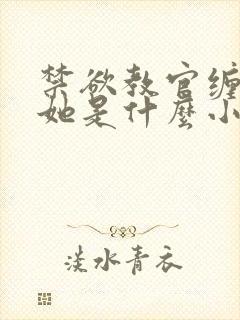 禁欲教官缠
她是什麼小
淡水青衣